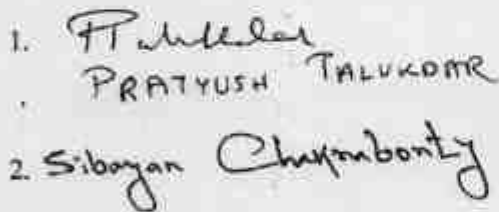 1. PTalukdar
PRATYUSH TALUKDAR
2. Sibayan Chakraborty